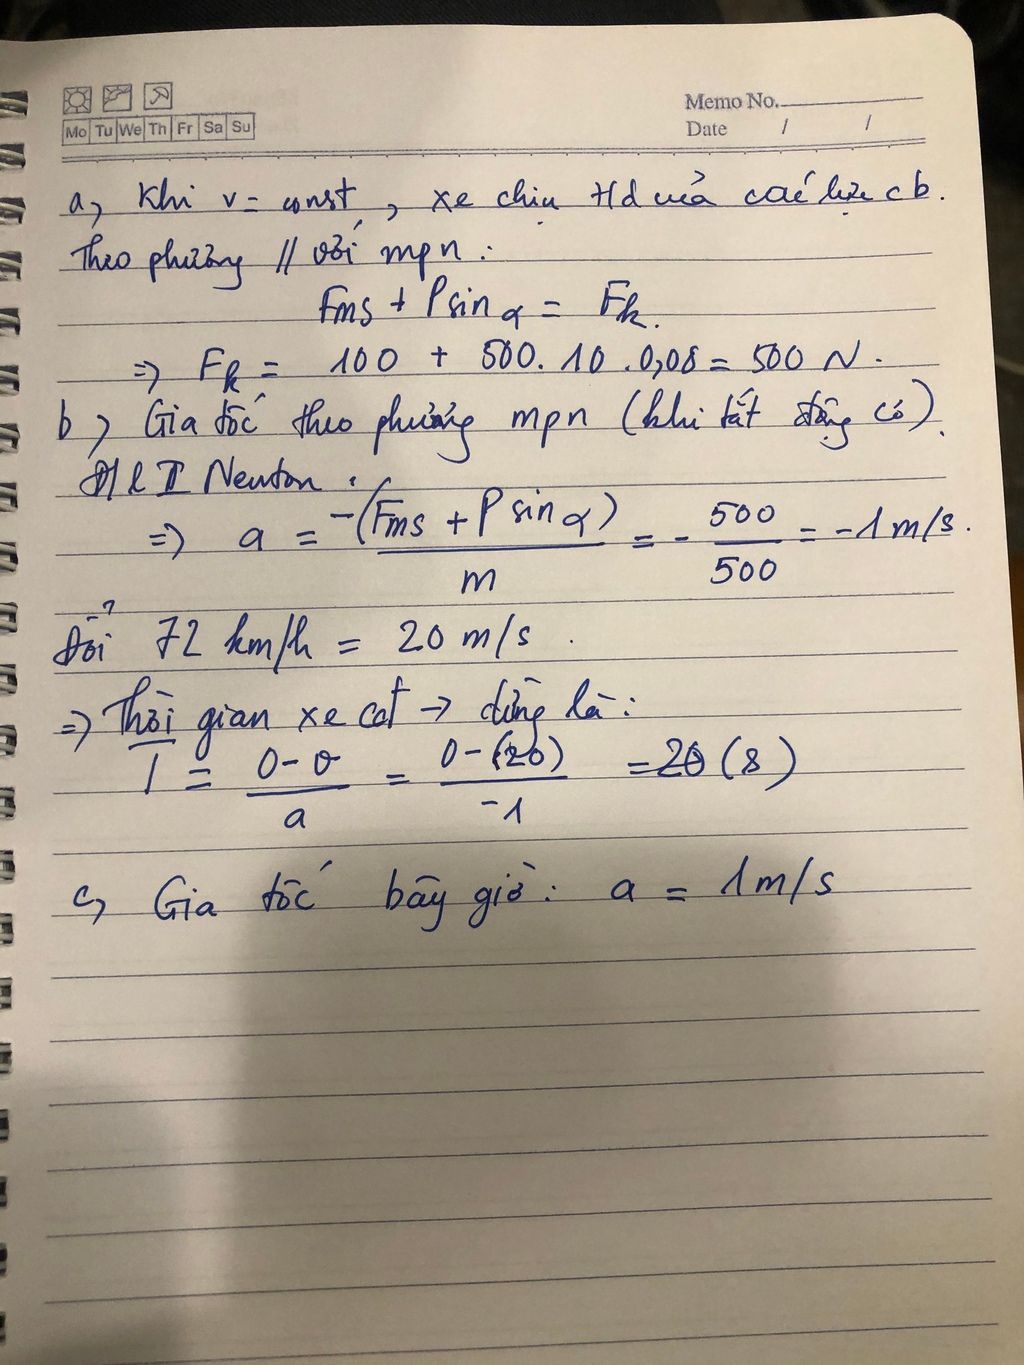 Memo No.
Mo Tu We Th Fr Sa Su
Date / /
a, Khi v = const, xe chịu td của các lực cb.
Theo phương // với mpn:
Fms + P sin α = Fk.
=> Fk = 100 + 500. 10 .0,08 = 500 N.
b, Gia tốc theo phương mpn (khi tắt động cơ).
ĐL II Newton.
=> a = -(Fms + P sin α) / m = - 500 / 500 = -1 m/s.
Đổi 72 km/h = 20 m/s.
=> Thời gian xe cđ → dừng là:
T = 0-v / a = 0-(20) / -1 = 20 (s)
c, Gia tốc bây giờ: a = 1m/s